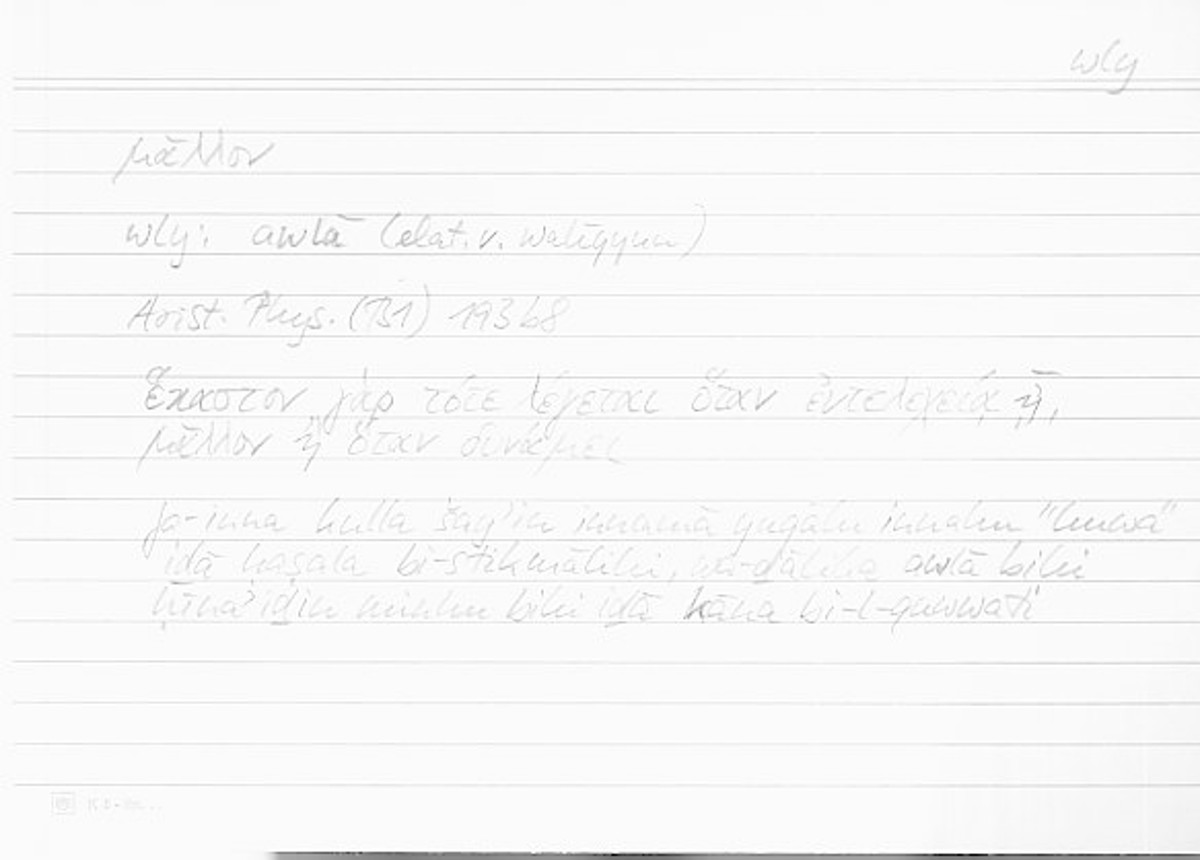 wly
μᾶλλον
wly: awlā (elat. v. walīyyun)
Arist. Phys. (B1) 193b8
ἕκαστον γὰρ τότε λέγεται ὅταν ἐντελεχείᾳ ᾖ,
μᾶλλον ἢ ὅταν δυνάμει
fa-inna kulla šayʾin innamā yuqālu innahu "huwa"
iḏā ḥaṣala bi-stikmālihi, wa-ḏālika awlā bihi
ḥīnaʾiḏin minhu bihi iḏā kāna bi-l-quwwati